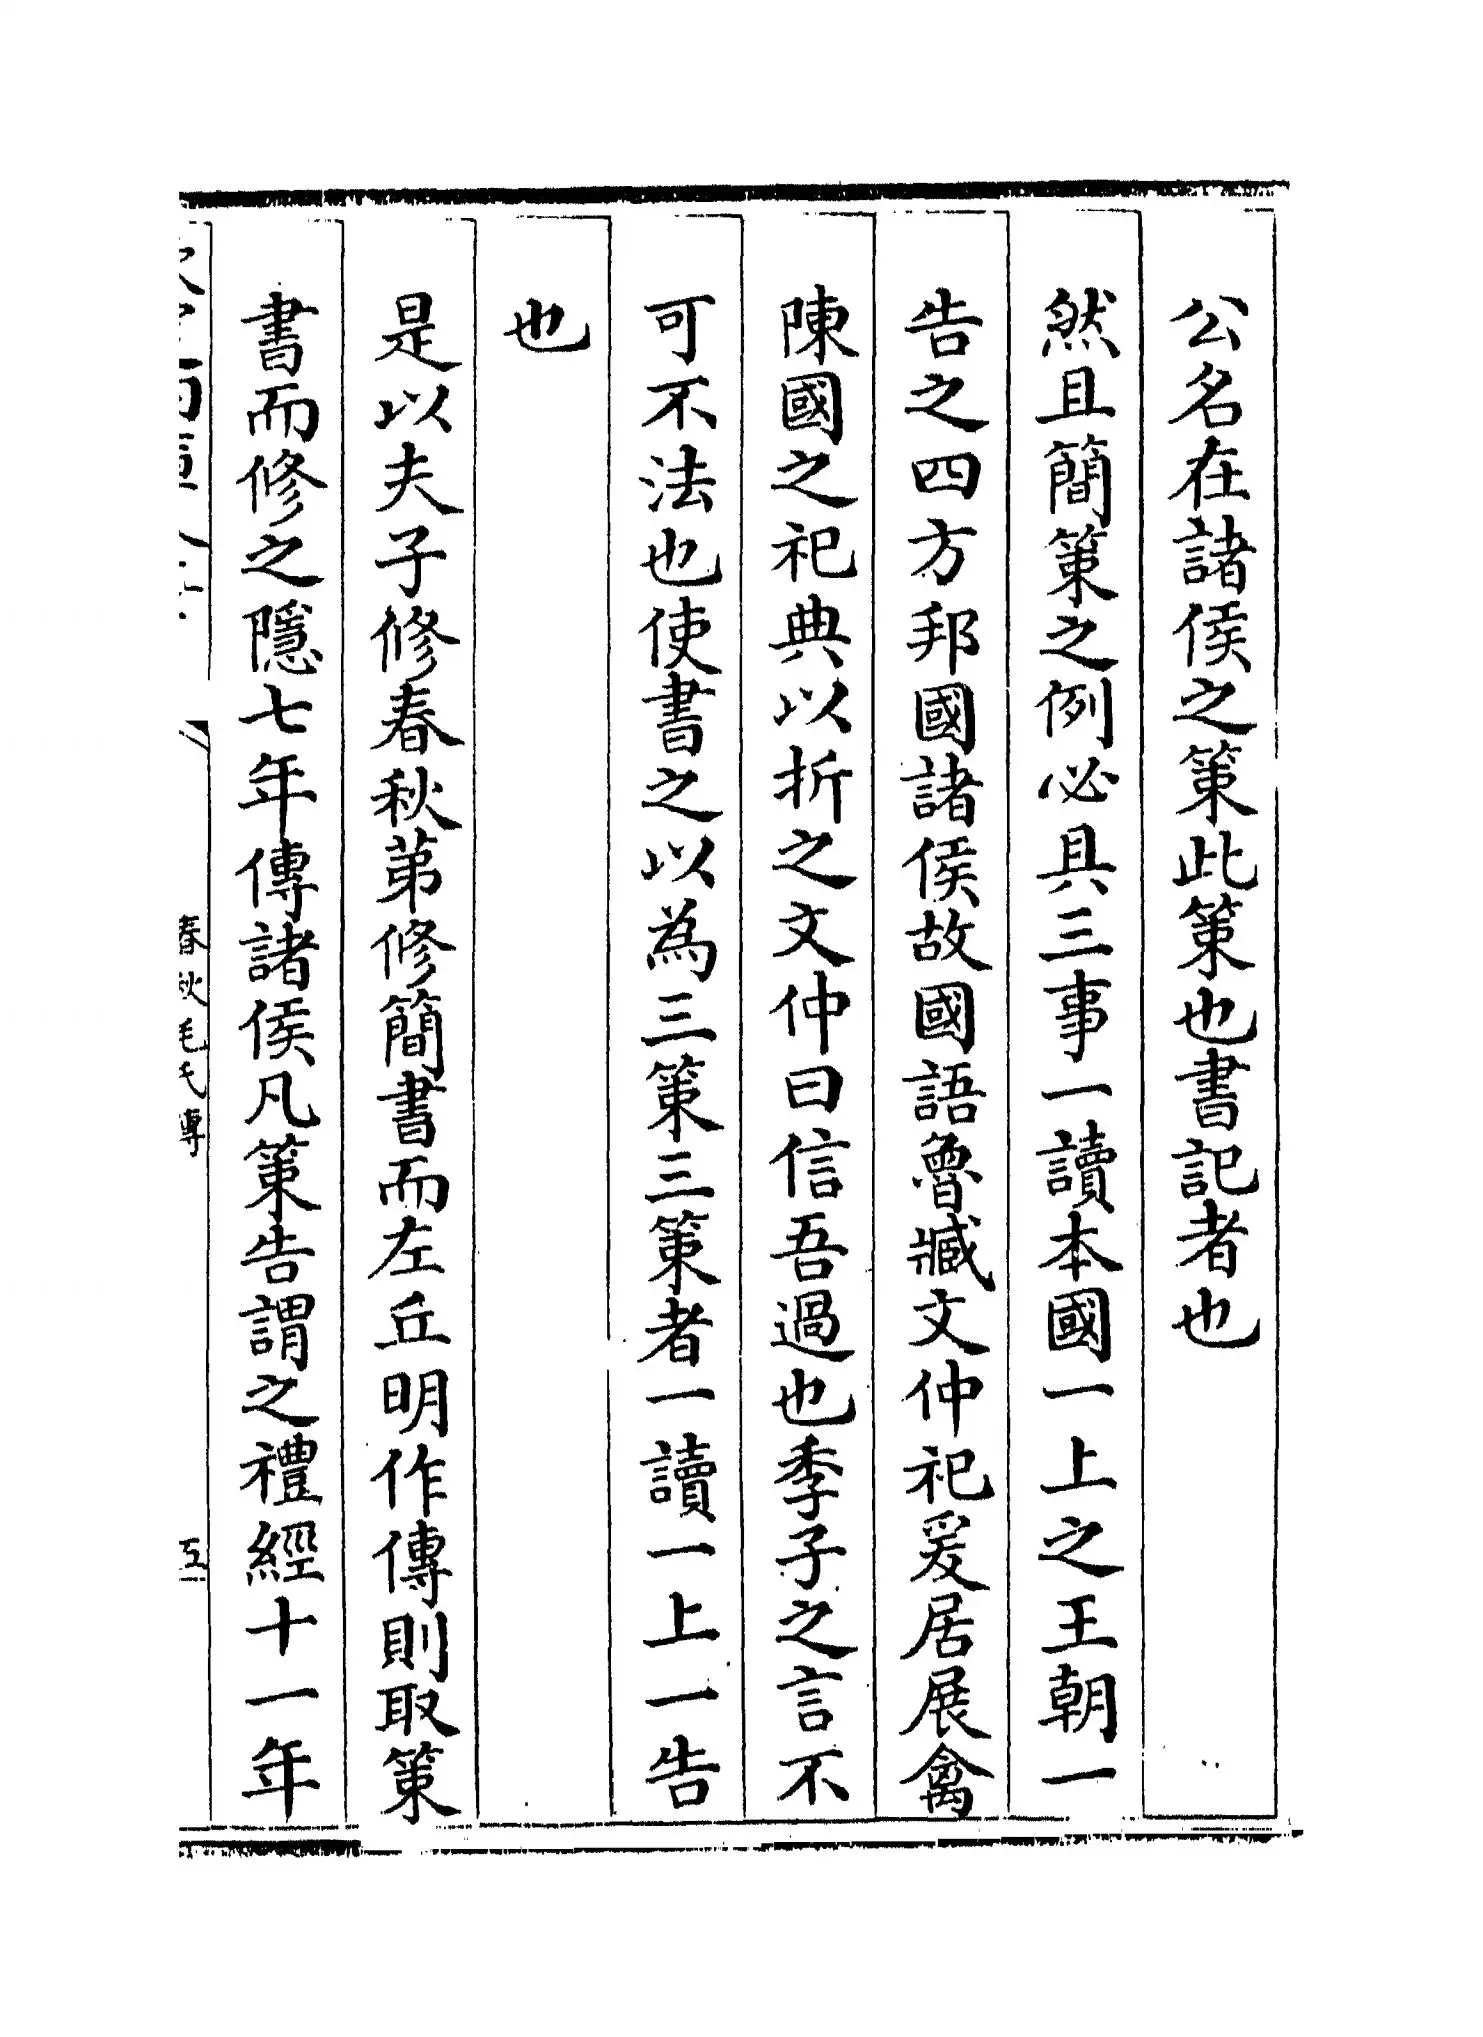 公名在諸侯之策此策也書記者也
然且簡策之例必具三事一讀本國一上之王朝一
告之四方邦國諸侯故國語魯臧文仲祀爰居展禽
陳國之祀典以折之文仲曰信吾過也季子之言不
可不法也使書之以為三策三策者一讀一上一告
也
是以夫子修春秋第修簡書而左丘明作傳則取策
書而修之隱七年傳諸侯凡策告謂之禮經十一年
春秋毛氏傳
五